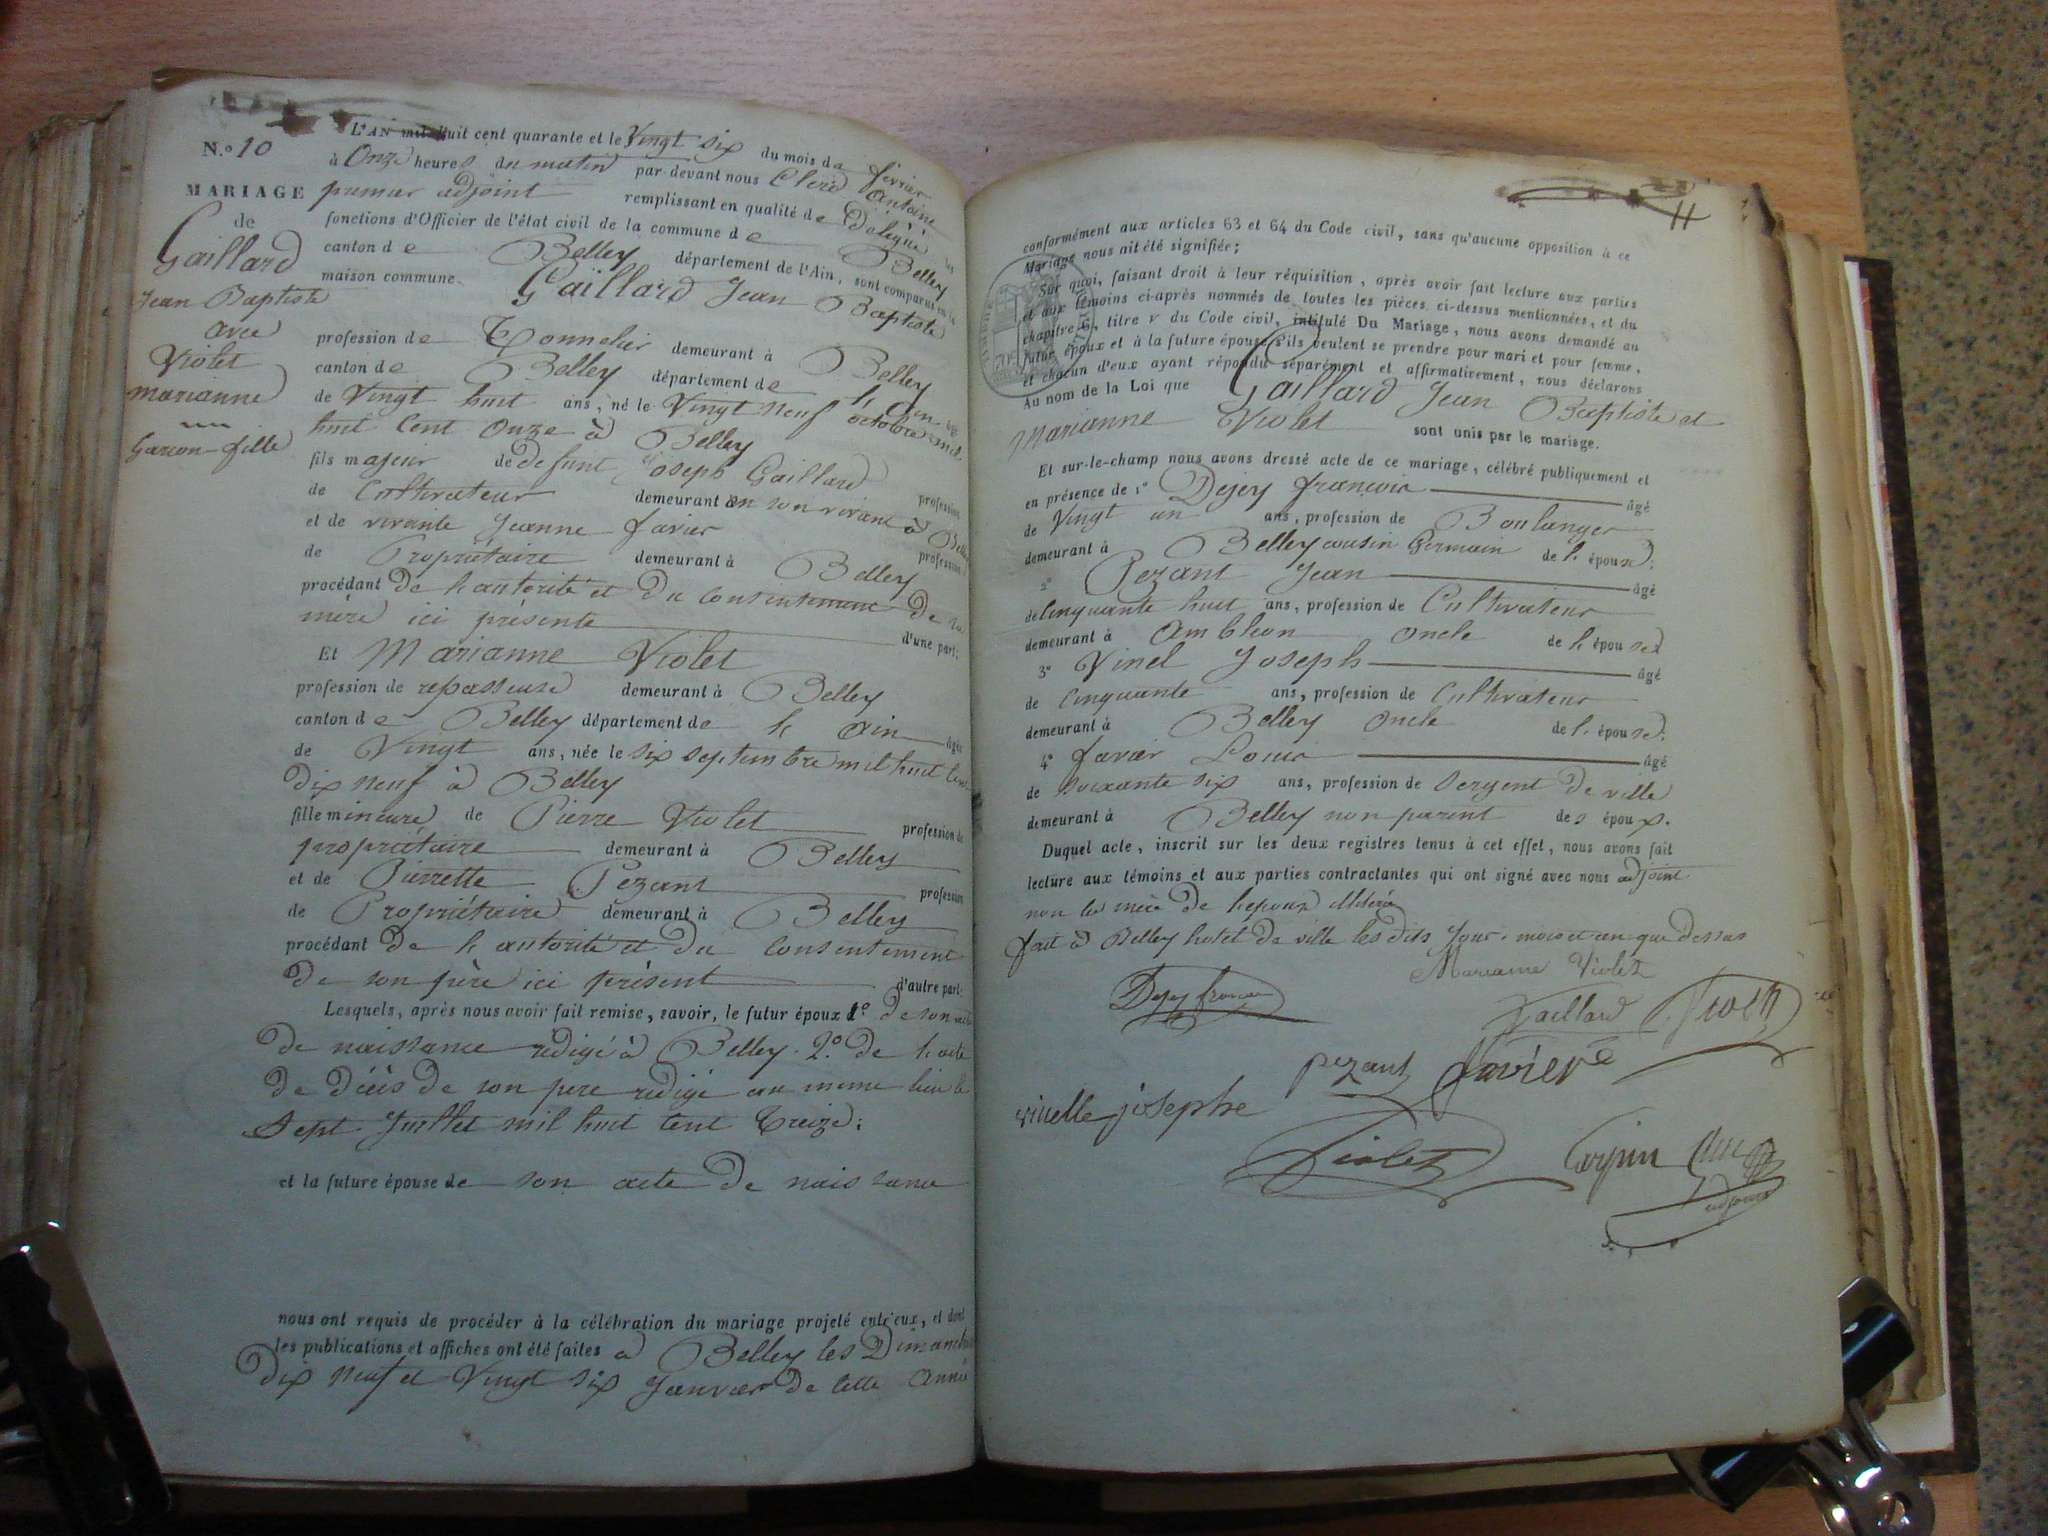 N.º 10
MARIAGE
de
Gaillard
Jean Baptiste
avec
Violet
marianne
Garcon - fille
L'AN mil huit cent quarante et le Vingt six du mois de fevrier
à Onze heures du matin par devant nous Clerc Antoine
premier adjoint remplissant en qualité de Délégué les
fonctions d'Officier de l'état civil de la commune de Belley
canton de Belley département de l'Ain, sont comparus en la
maison commune. Gaillard Jean Baptiste
profession de Tonnelier demeurant à Belley
canton de Belley département de l'ain âgé
de Vingt huit ans, né le Vingt neuf octobre mil
huit Cent Onze à Belley
fils majeur de defunt Joseph Gaillard profession
de Cultivateur demeurant en son vivant à Belley
et de vivante Jeanne favier profession
de Propriétaire demeurant à Belley
procédant de l'autorité et du consentement de sa
mère ici présente d'une part;
Et Marianne Violet
profession de repasseuse demeurant à Belley
canton de Belley département de l'ain âgée
de Vingt ans, née le six septembre mil huit cent
dix neuf à Belley
fille mineure de Pierre Violet profession de
propriétaire demeurant à Belley
et de Pierrette Pezant profession
de Propriétaire demeurant à Belley
procédant de l'autorité et du Consentement
de son père ici présent d'autre part.
Lesquels, après nous avoir fait remise, savoir, le futur époux 1º de son acte
de naissance rédigé à Belley. 2º de l'acte
de décès de son pere rédigé au meme lieu le
Sept Juillet mil huit Cent Treize;
et la future épouse de son acte de naissance
nous ont requis de procéder à la célébration du mariage projeté entr'eux, et dont
les publications et affiches ont été faites à Belley les Dimanches
Dix neuf et Vingt six Janvier de cette Année
11
conformément aux articles 63 et 64 du Code civil, sans qu'aucune opposition à ce
Mariage nous ait été signifiée;
Sur quoi, faisant droit à leur réquisition, après avoir fait lecture aux parties
et aux témoins ci-après nommés de toutes les pièces ci-dessus mentionnées, et du
chapitre 6, titre v du Code civil, intitulé Du Mariage, nous avons demandé au
futur époux et à la future épouse s'ils veulent se prendre pour mari et pour femme,
et chacun d'eux ayant répondu séparément et affirmativement, nous déclarons
Au nom de la Loi que Gaillard Jean Baptiste et
Marianne Violet sont unis par le mariage.
Et sur-le-champ nous avons dressé acte de ce mariage, célébré publiquement et
en présence de 1º Dejey françois âgé
de Vingt un ans, profession de Boulanger
demeurant à Belley cousin Germain de l'épouse;
2º Pezant Jean âgé
de Cinquante huit ans, profession de Cultivateur
demeurant à Ambléon oncle de l'épouse;
3º Vinel Joseph âgé
de Cinquante ans, profession de Cultivateur
demeurant à Belley oncle de l'épouse;
4º favier Louis âgé
de soixante six ans, profession de sergent de ville
demeurant à Belley non parent des époux.
Duquel acte, inscrit sur les deux registres tenus à cet effet, nous avons fait
lecture aux témoins et aux parties contractantes qui ont signé avec nous adjoint
non la mère de l'epoux illitérée
fait à Belley hotel de ville les dits Jour, mois et an que dessus
Marianne Violet
Dejey françois Gaillard
pezant favier
vinelle josephe
Violet
adjoint